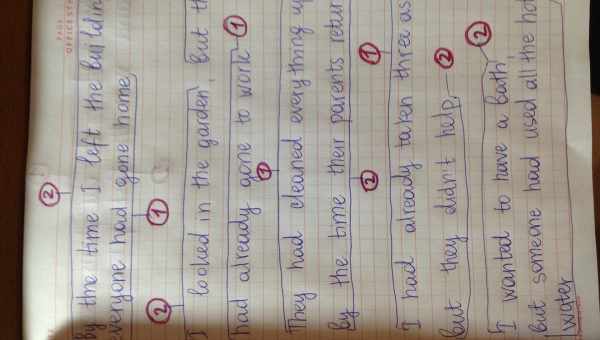 ②
By the time I left the
everyone had gone home.
① ②
I looked in the garden, but
had already gone to work ①
①
They had cleaned everything
by the time their parents
② ①
I had already taken three
but they didn't help. ②
②
I wanted to have a bath,
but someone had used all the
water